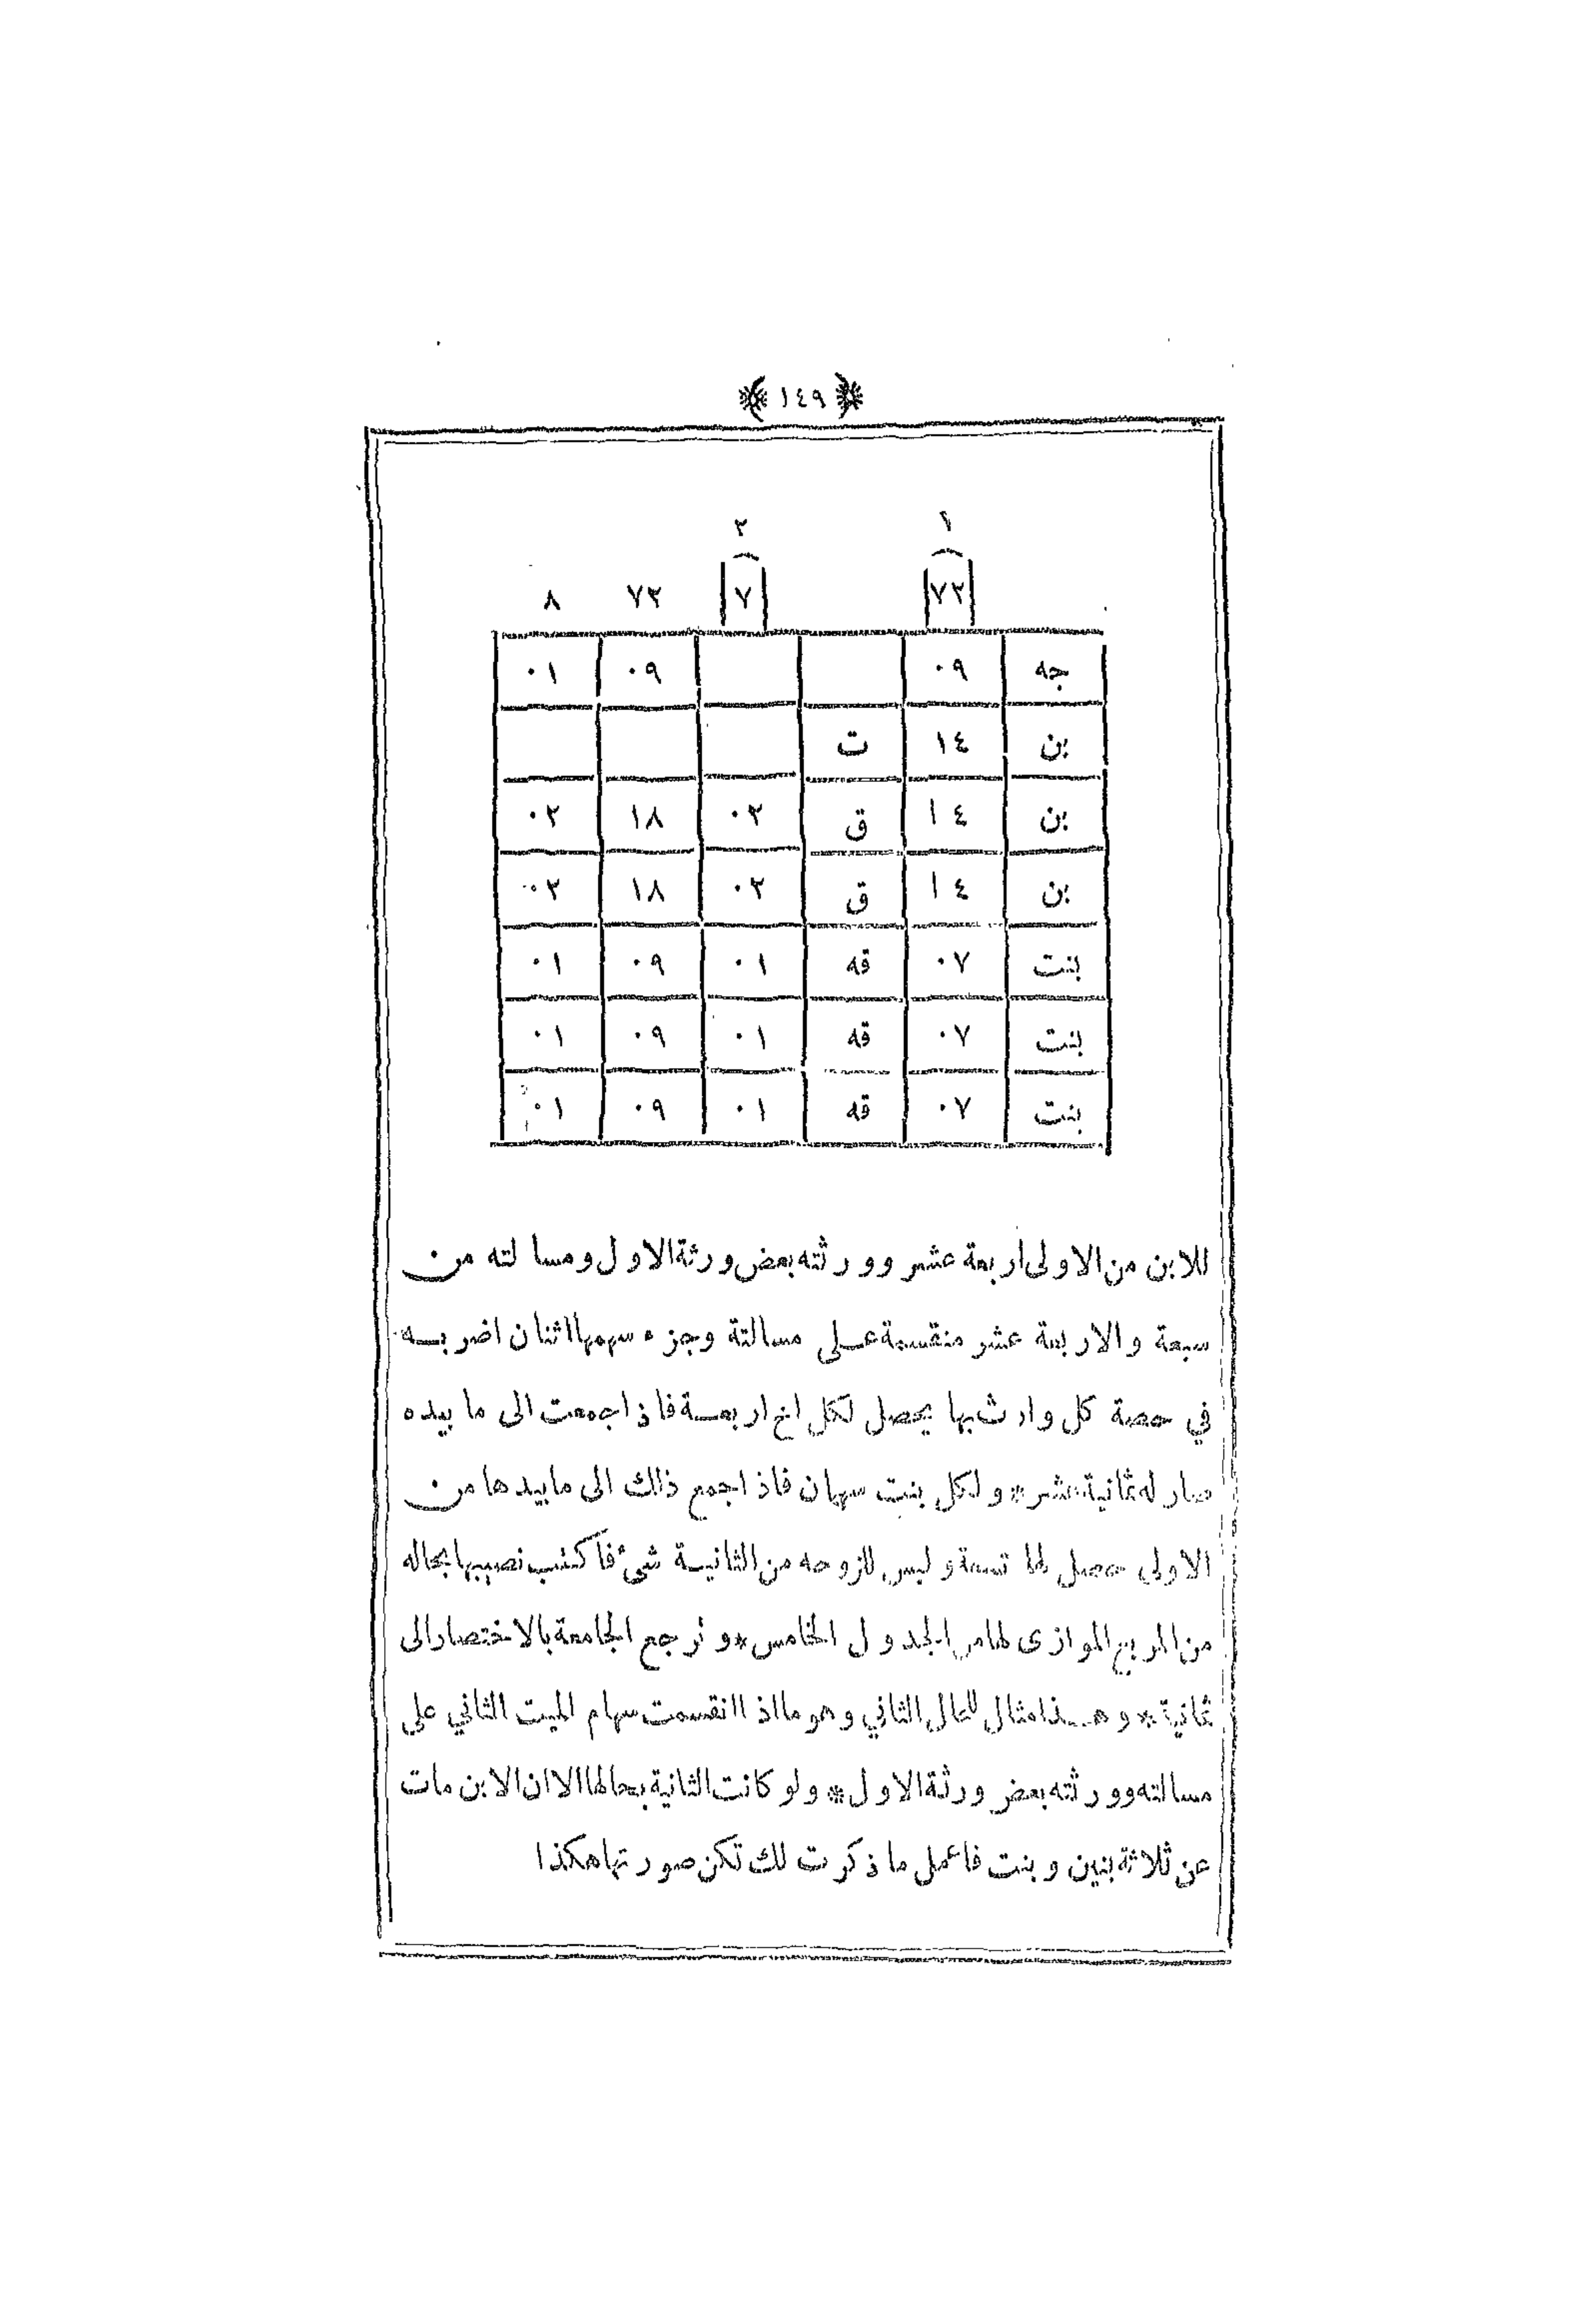 ﴿ ١٤٩ ﴾
١ ٢
٧٢ ٧ ٧٢ ٨
جه ٠٩ ٠٩ ٠١
بن ١٤ ت
بن ١٤ ق ٠٢ ١٨ ٠٢
بن ١٤ ق ٠٢ ١٨ ٠٢
بنت ٠٧ قه ٠١ ٠٩ ٠١
بنت ٠٧ قه ٠١ ٠٩ ٠١
بنت ٠٧ قه ٠١ ٠٩ ٠١
للابن من الاولى اربعة عشر وورثته بعض ورثة الاول ومسالته من
سبعة والاربعة عشر منقسمة على مسالتة وجزء سهمها اثنان اضربه
في حصة كل وارث بها يحصل لكل اخ اربعة فاذا جمعت الى ما بيده
صار له ثمانية عشر * ولكل بنت سهمان فاذا جمع ذلك الى ما بيدها من
الاولى حصل لها تسعة وليس للزوجه من الثانية شئ فاكتب نصيبها بحاله
من المربع الموازى لها من الجدول الخامس * وترجع الجامعة بالاختصار الى
ثمانية * وهذا مثال للحال الثاني وهو ما اذا انقسمت سهام الميت الثاني على
مسالته وورثته بعض ورثة الاول * ولو كانت الثانية بحالها الا ان الابن مات
عن ثلاثة بنين وبنت فاعمل ما ذكرت لك تكن صورتها هكذا